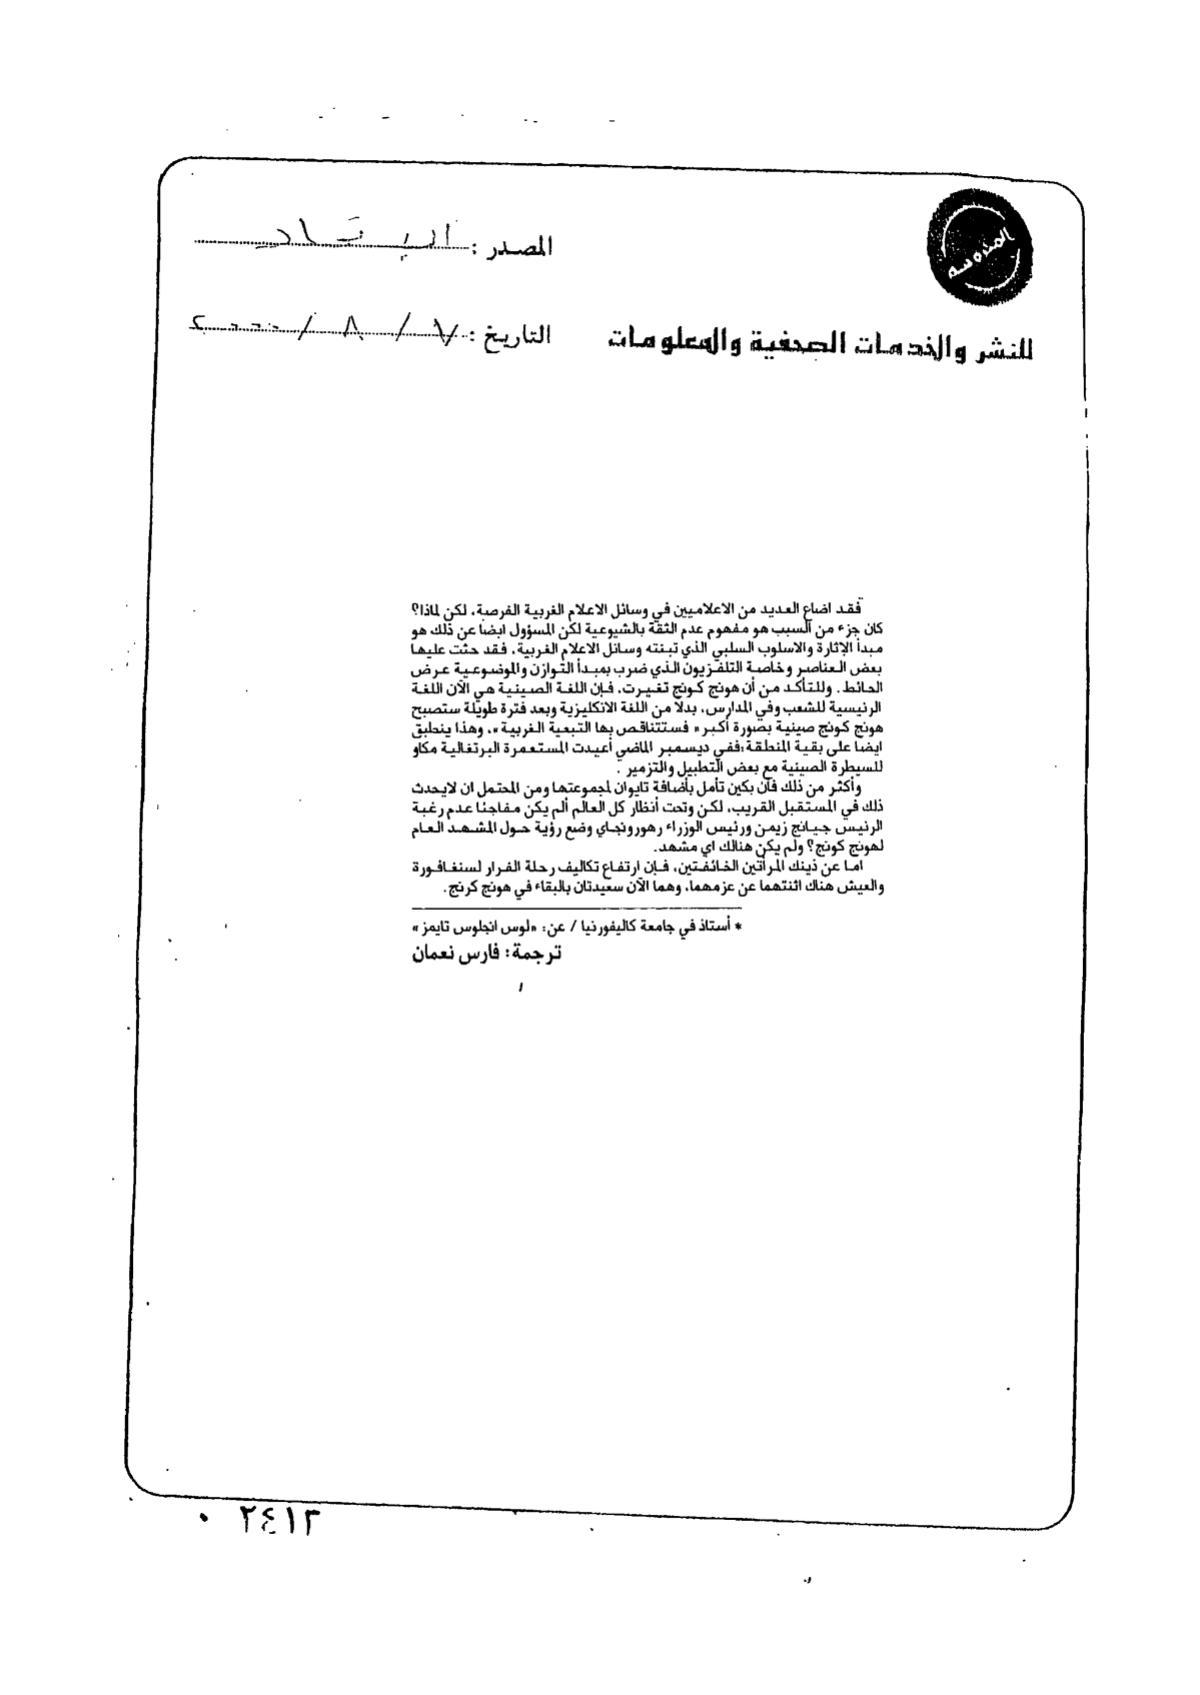 المحروسة
المصدر :
للنشر والخدمات الصحفية والمعلومات
التاريخ : ٧ / ٨ / ٢٠٠٠
فقد اضاع العديد من الاعلاميين في وسائل الاعلام الغربية الفرصة، لكن لماذا؟
كان جزء من السبب هو مفهوم عدم الثقة بالشيوعية لكن المسؤول ايضا عن ذلك هو
مبدأ الإثارة والاسلوب السلبي الذي تبنته وسائل الاعلام الغربية، فقد حثت عليها
بعض العناصر وخاصة التلفزيون الذي ضرب بمبدأ التوازن والموضوعية عرض
الحائط. وللتأكد من أن هونج كونج تغيرت، فإن اللغة الصينية هي الآن اللغة
الرئيسية للشعب وفي المدارس، بدلا من اللغة الانكليزية وبعد فترة طويلة ستصبح
هونج كونج صينية بصورة أكبر» فستتناقص بها التبعية الغربية»، وهذا ينطبق
ايضا على بقية المنطقة؛ففي ديسمبر الماضي أعيدت المستعمرة البرتغالية مكاو
للسيطرة الصينية مع بعض التطبيل والتزمير .
وأكثر من ذلك فأن بكين تأمل بأضافة تايوان لمجموعتها ومن المحتمل ان لايحدث
ذلك في المستقبل القريب، لكن وتحت أنظار كل العالم ألم يكن مفاجئا عدم رغبة
الرئيس جيانج زيمن ورئيس الوزراء رهورونجاي وضع رؤية حول المشهد العام
لهونج كونج؟ ولم يكن هنالك اي مشهد.
اما عن ذينك المرأتين الخائفتين، فإن ارتفاع تكاليف رحلة الفرار لسنغافورة
والعيش هناك اثنتهما عن عزمهما، وهما الآن سعيدتان بالبقاء في هونج كرنج.
* أستاذ في جامعة كاليفورنيا / عن: «لوس انجلوس تايمز»
ترجمة: فارس نعمان
٠ ٢٤١٣